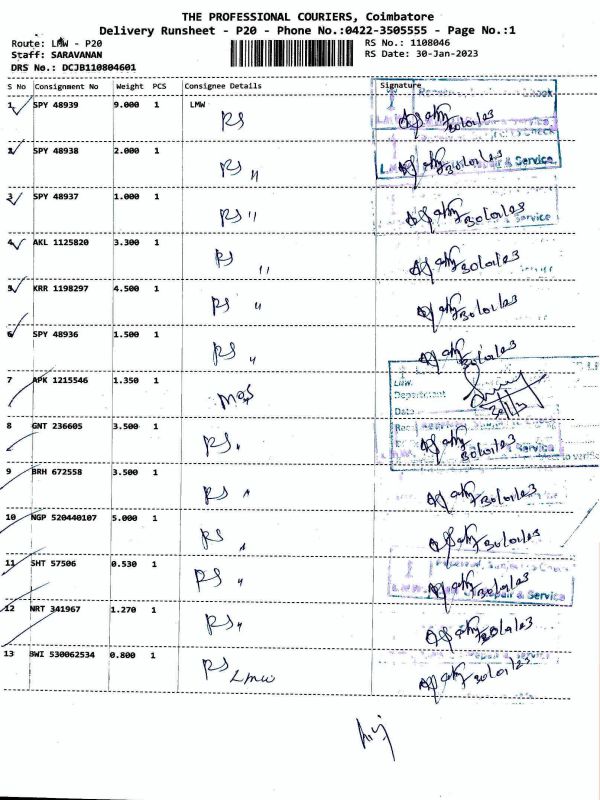 THE PROFESSIONAL COURIERS, Coimbatore
Delivery Runsheet - P20 - Phone No.:0422-3505555 - Page No.:1
Route: LMW - P20 RS No.: 1108046
Staff: SARAVANAN RS Date: 30-Jan-2023
DRS No.: DCJB110804601
S No Consignment No Weight PCS Consignee Details Signature
1 SPY 48939 9.000 1 LMW
RS 30/01/23
2 SPY 48938 2.000 1
RS " 30/01/23
& Service
3 SPY 48937 1.000 1
RS " 30/01/23
Service
4 AKL 1125820 3.300 1
RS " 30/01/23
5 KRR 1198297 4.500 1
RS " 30/01/23
6 SPY 48936 1.500 1
RS " 30/01/23
7 APK 1215546 1.350 1 LMW
Department
Date
8 GNT 236605 3.500 1
RS " 30/01/23
& Service
9 BRH 672558 3.500 1
RS " 30/01/23
10 NGP 520440107 5.000 1
RS " 30/01/23
11 SHT 57506 0.530 1
RS " 30/01/23
Repair & Service
12 NRT 341967 1.270 1
RS " 30/01/23
13 BWI 530062534 0.800 1
RS Lmw 30/01/23